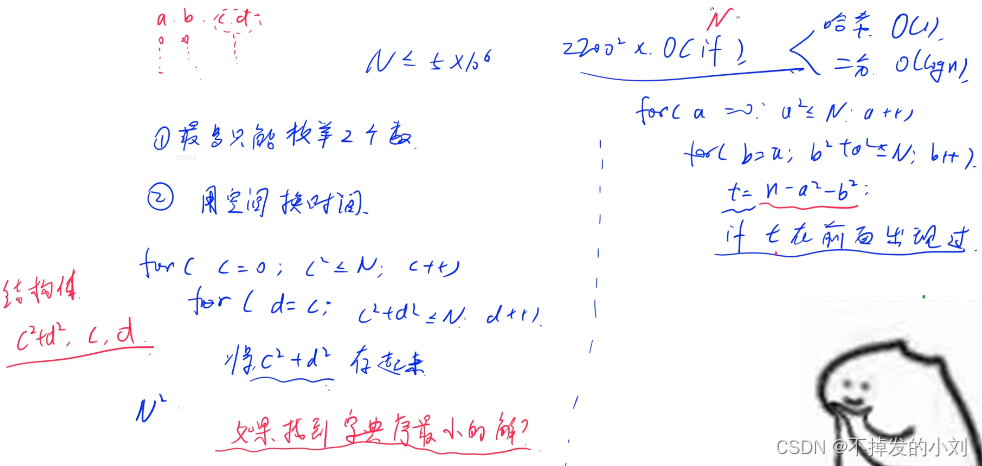 a. b. c. d
N ≤ 5×10⁶
① 最多只能枚举2个数.
② 用空间换时间.
for( c=0; c²≤N; c++)
for( d=c; c²+d²≤N. d++).
将c²+d² 存起来
结构体
c²+d², c, d
N²
如果找到字典序最小的解?
N
2200² × O(if)
哈希. O(1).
二分. O(logn).
for( a=0; a²≤N; a++)
for( b=a; b²+a²≤N; b++).
t=n-a²-b²;
if t在前面出现过.
CSDN @不掉发的小刘